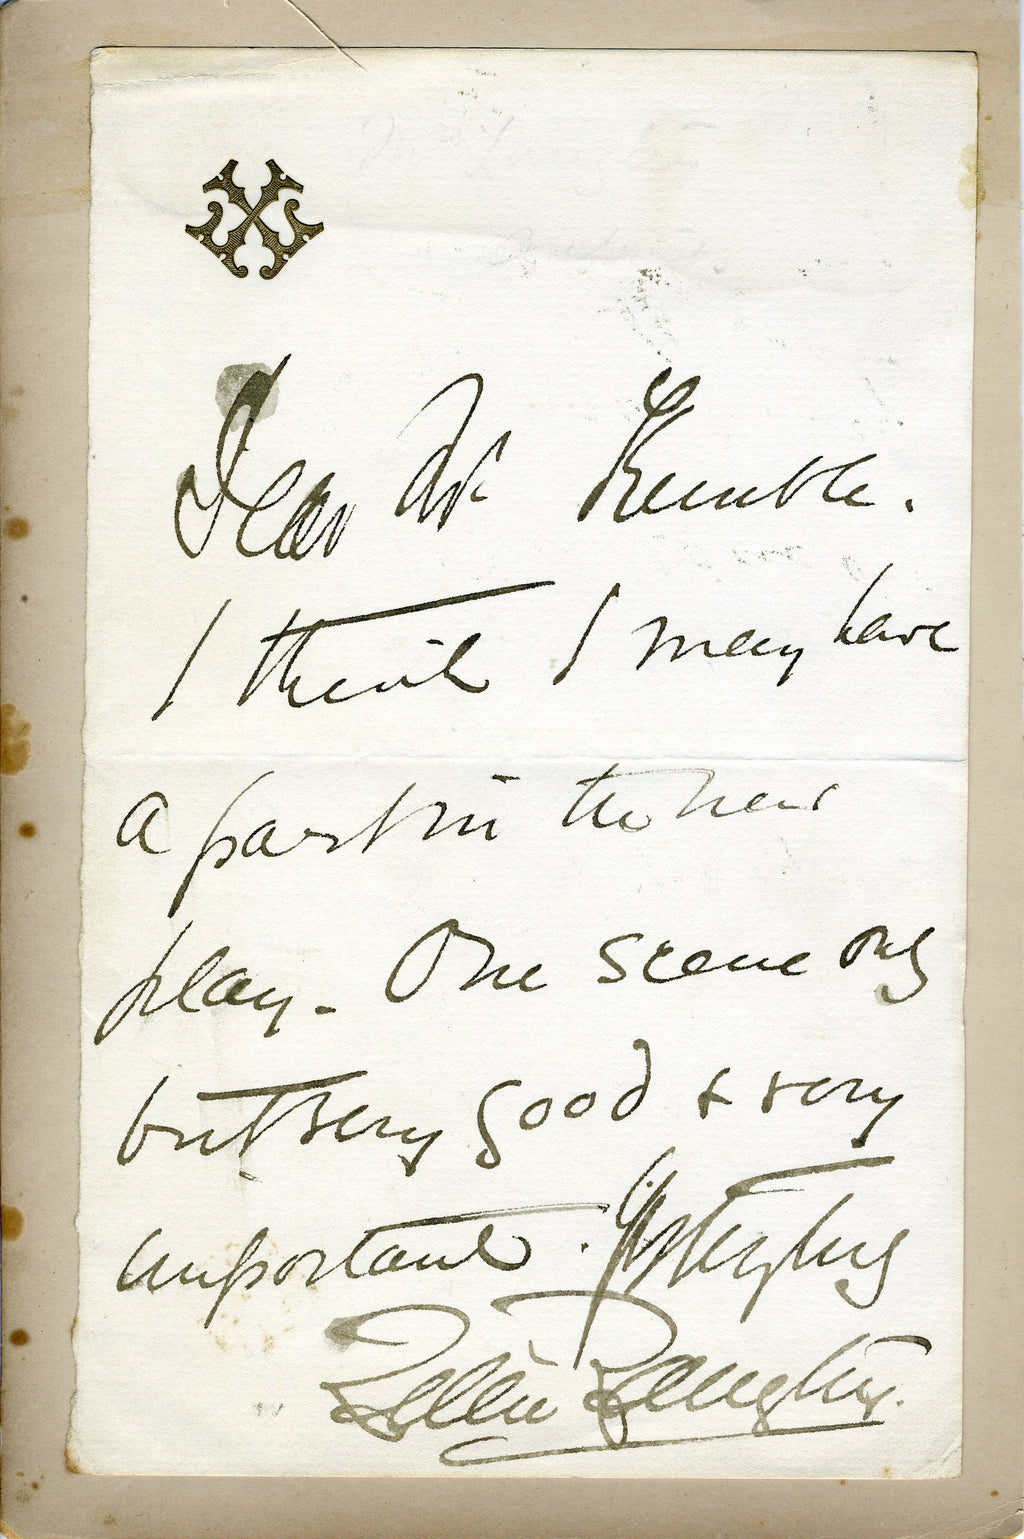 Dear Mr Kemble.
I think I may have
a part in the new
play. One scene only
but very good & very
important. Yrs truly
Lillie Langtry.